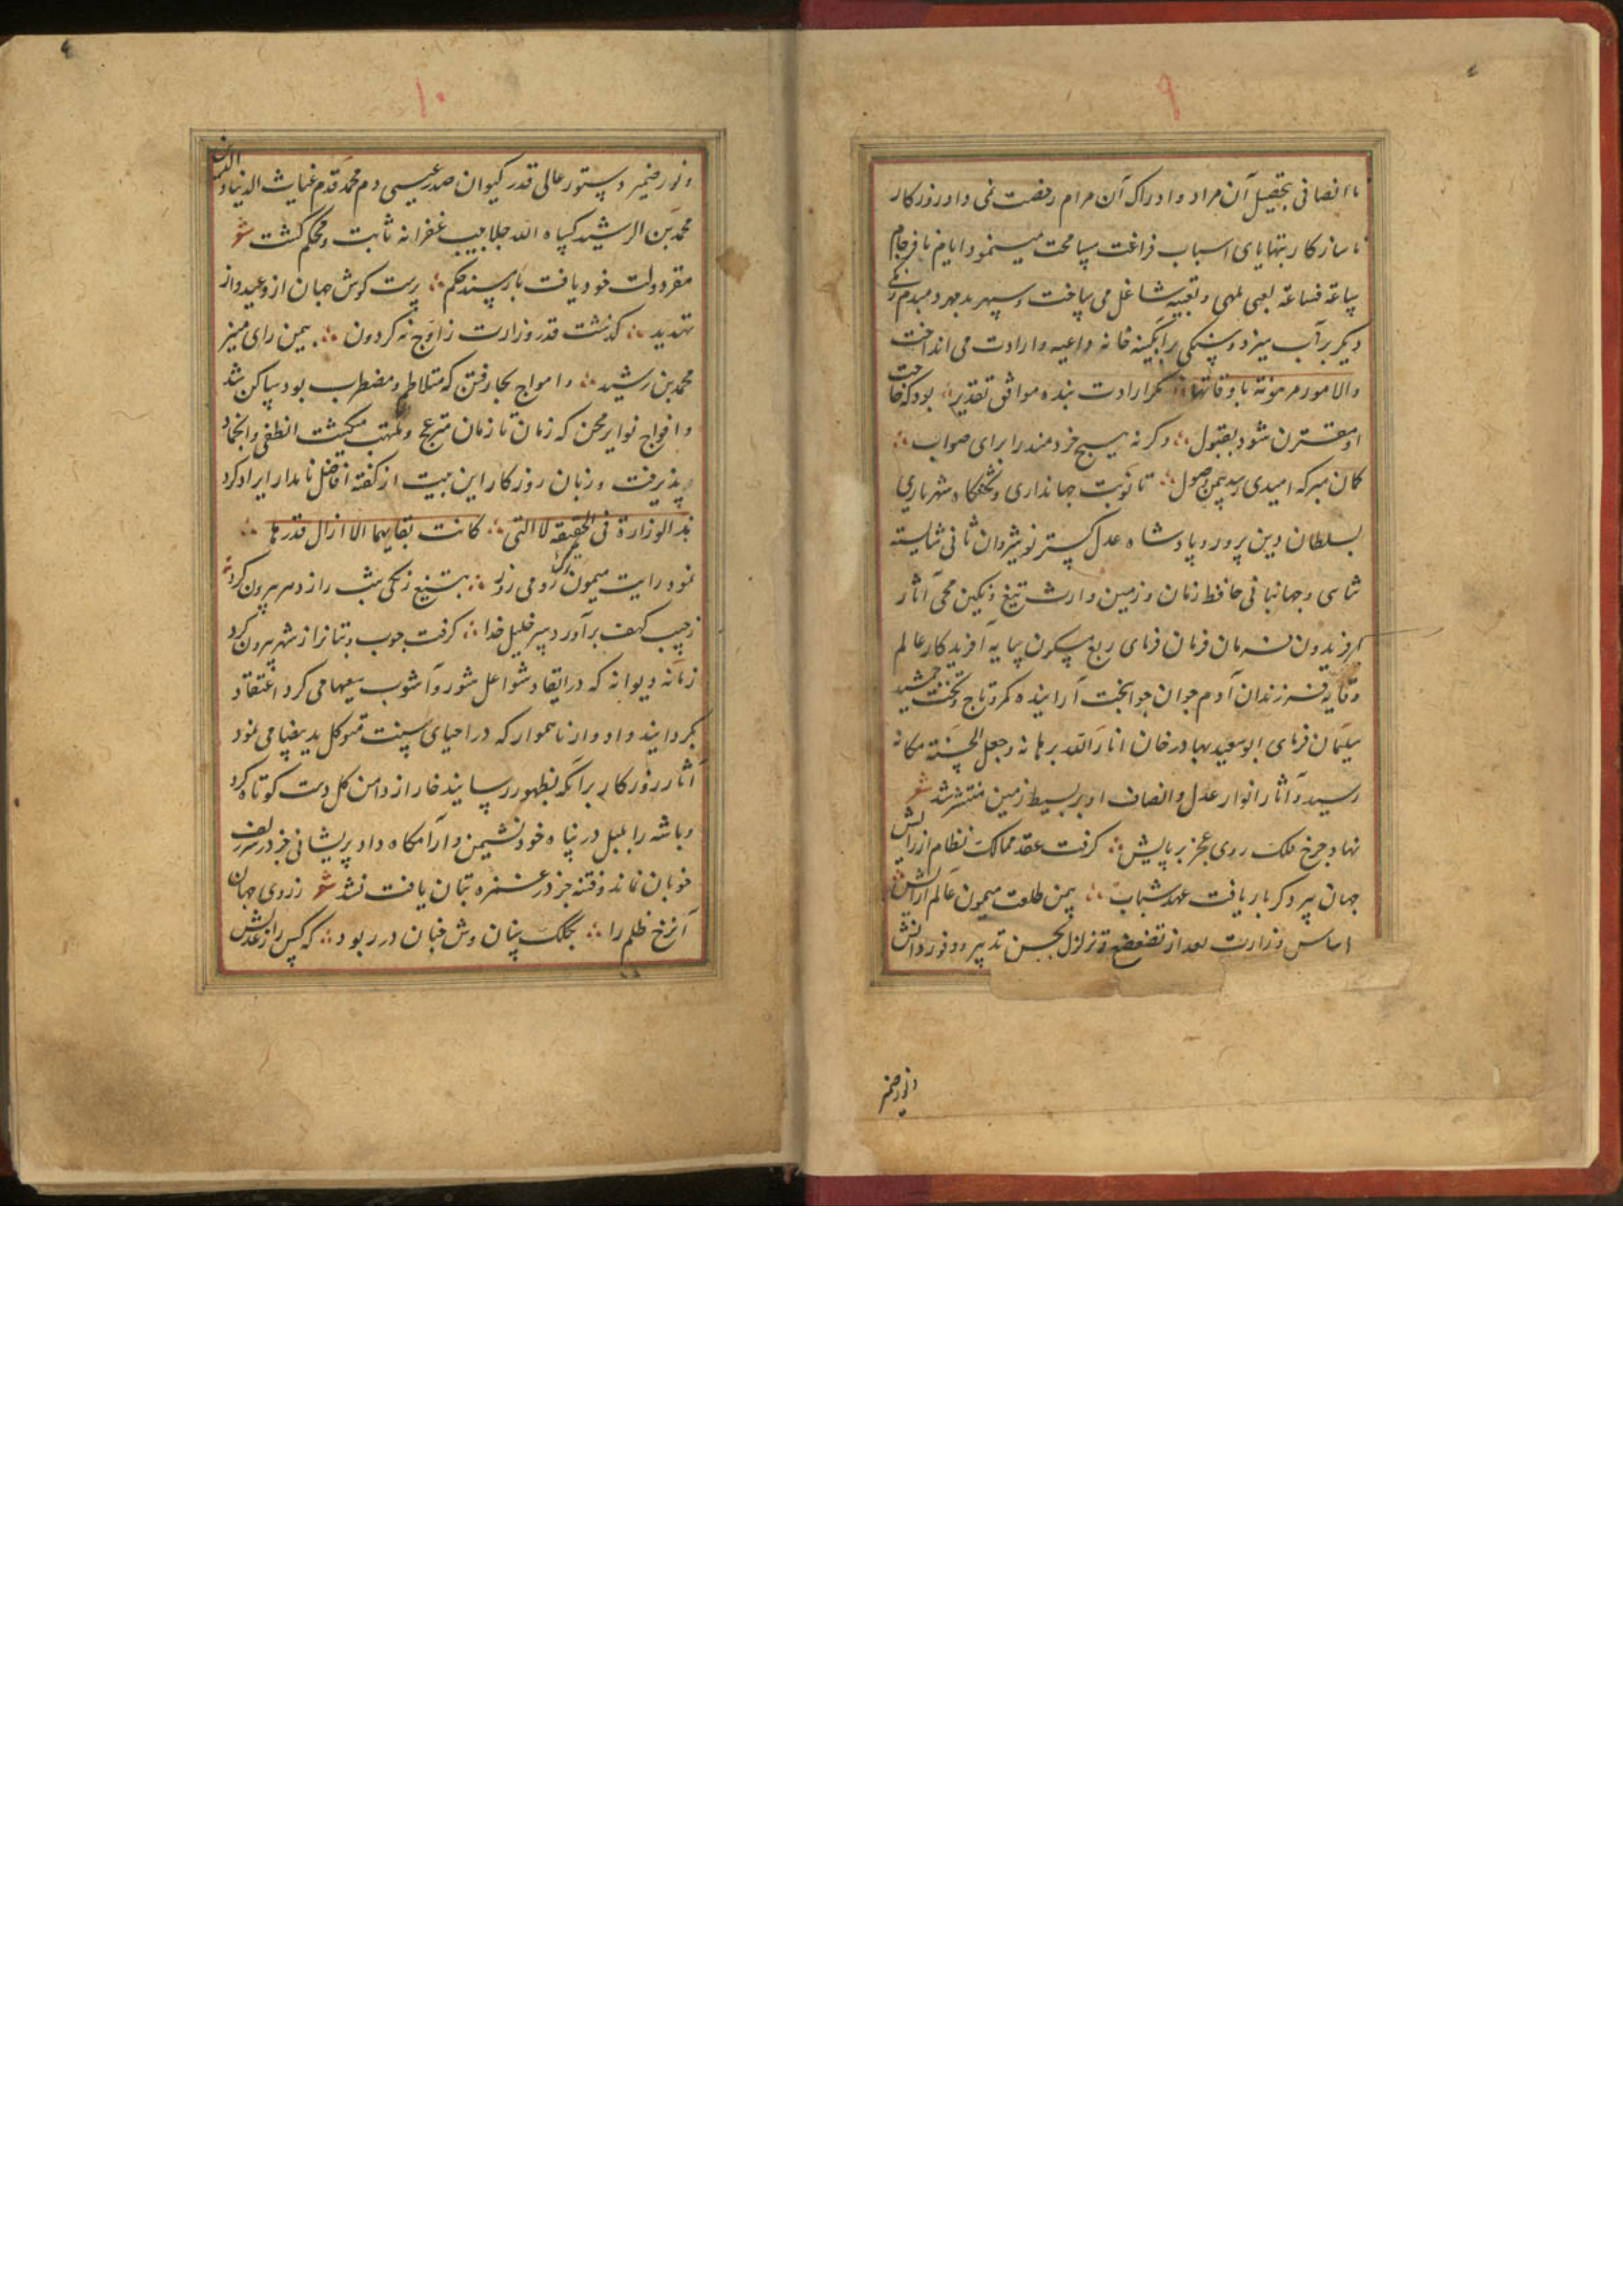 ۹
نا انصافی بتحصیل آن مراد و ادراک آن مرام رخصت نمی داد و روزکار
ناسازکار بتهیای اسباب فراغت مسامحت مینمود و ایام نافرجام
ساعة فساعة لعبی ملهی و تعبیه شاغل می ساخت و سپهر بدمهر دمبدم رنکی
دیکر بر آب میزد و سنکی بر آبکینه خانه داعیه و ارادت می انداخت
والامور مرهونة باوقاتها مکر ارادت بنده موافق تقدیر بود که خاجت
او مقترن شود بقبول وکرنه هیچ خردمند را برای صواب
کمان مبر که امیدی رسد بیمن وصول تا نوبت جهانداری و تختکاه شهریاری
بسلطان دین پرور و پادشاه عدل کستر نوشیروان ثانی شایسته
شاسی و جهانبانی حافظ زمان و زمین وارث تیغ و نکین محی آثار
افریدون فرمان فرمان فرمای ربع مسکون سایه افریدکار عالم
وقایه فرزندان آدم جوان جوانبخت آراینده کمر و تاج و تخت جمشید
سلیمان فرمای ابو سعید بهادرخان انار الله برهانه و جعل الجنة مکانه
رسید و آثار انوار عدل و انصاف او بر بسیط زمین منتشر شد شعر
نهاد چرخ فلک روی عجز بر پایش کرفت عقد ممالک نظام از رایش
جهان پیر دکر بار یافت عهد شباب بیمن طلعت میمون عالم آرایش
اساس وزارت بعد از تضعضع و تزلزل بحسن تدبیر و وفور دانش
و نور ضمیر
۱۰
و نور ضمیر دستور عالی قدر کیوان صدر عیسی دم محمد قدم غیاث الدنیا والدین
محمد بن الرشید کساه الله جلابیب غفرانه ثابت و محکم کشت شعر
مقر دولت خود یافت باز مسند حکم پرست کوش جهان از وعید و از
تهدید کذشت قدر وزارت ز اوج نه کردون بیمن رای منیر
محمد بن رشید و امواج بحار فتن که متلاطم و مضطرب بود ساکن شد
و افواج نوایر محن که زمان تا زمان منزعج و ملتهب میکشت انطفی و انخماد
پذیرفت و زبان روزکار این بیت از کفته افاضل نامدار ایراد کرد
ید الوزارة فی الحقیقة لا التی کانت بقایهما الا ازال قدرها
نمود رایت میمون رومی روز بتیغ زنکی شب را ز دهر بیرون کرد
ز جیب کهف بر آورد سر خلیل خدا کرفت چوب و بتانرا ز شهر بیرون کرد
زمانه دیوانه که در ایقاد شواعل شور و آشوب سعیها می کرد اعتقاد
بکردانید و ادوار ناهموار که در احیای سنت متوکل ید بیضا می نمود
آثار روزکار بر آنکه بظهور رسانید خار از دامن کل دست کوتاه کرد
و باشه را بلبل در پناه خود نشیمن و آرامکاه داد پریشانی جز در سر زلف
خوبان نماند و فتنه جز در غمزه بتان یافت نشد شعر ز روی جهان
آنرخ ظلم را بکلک سنان وش چنان در ربود که کس را ز عدلش